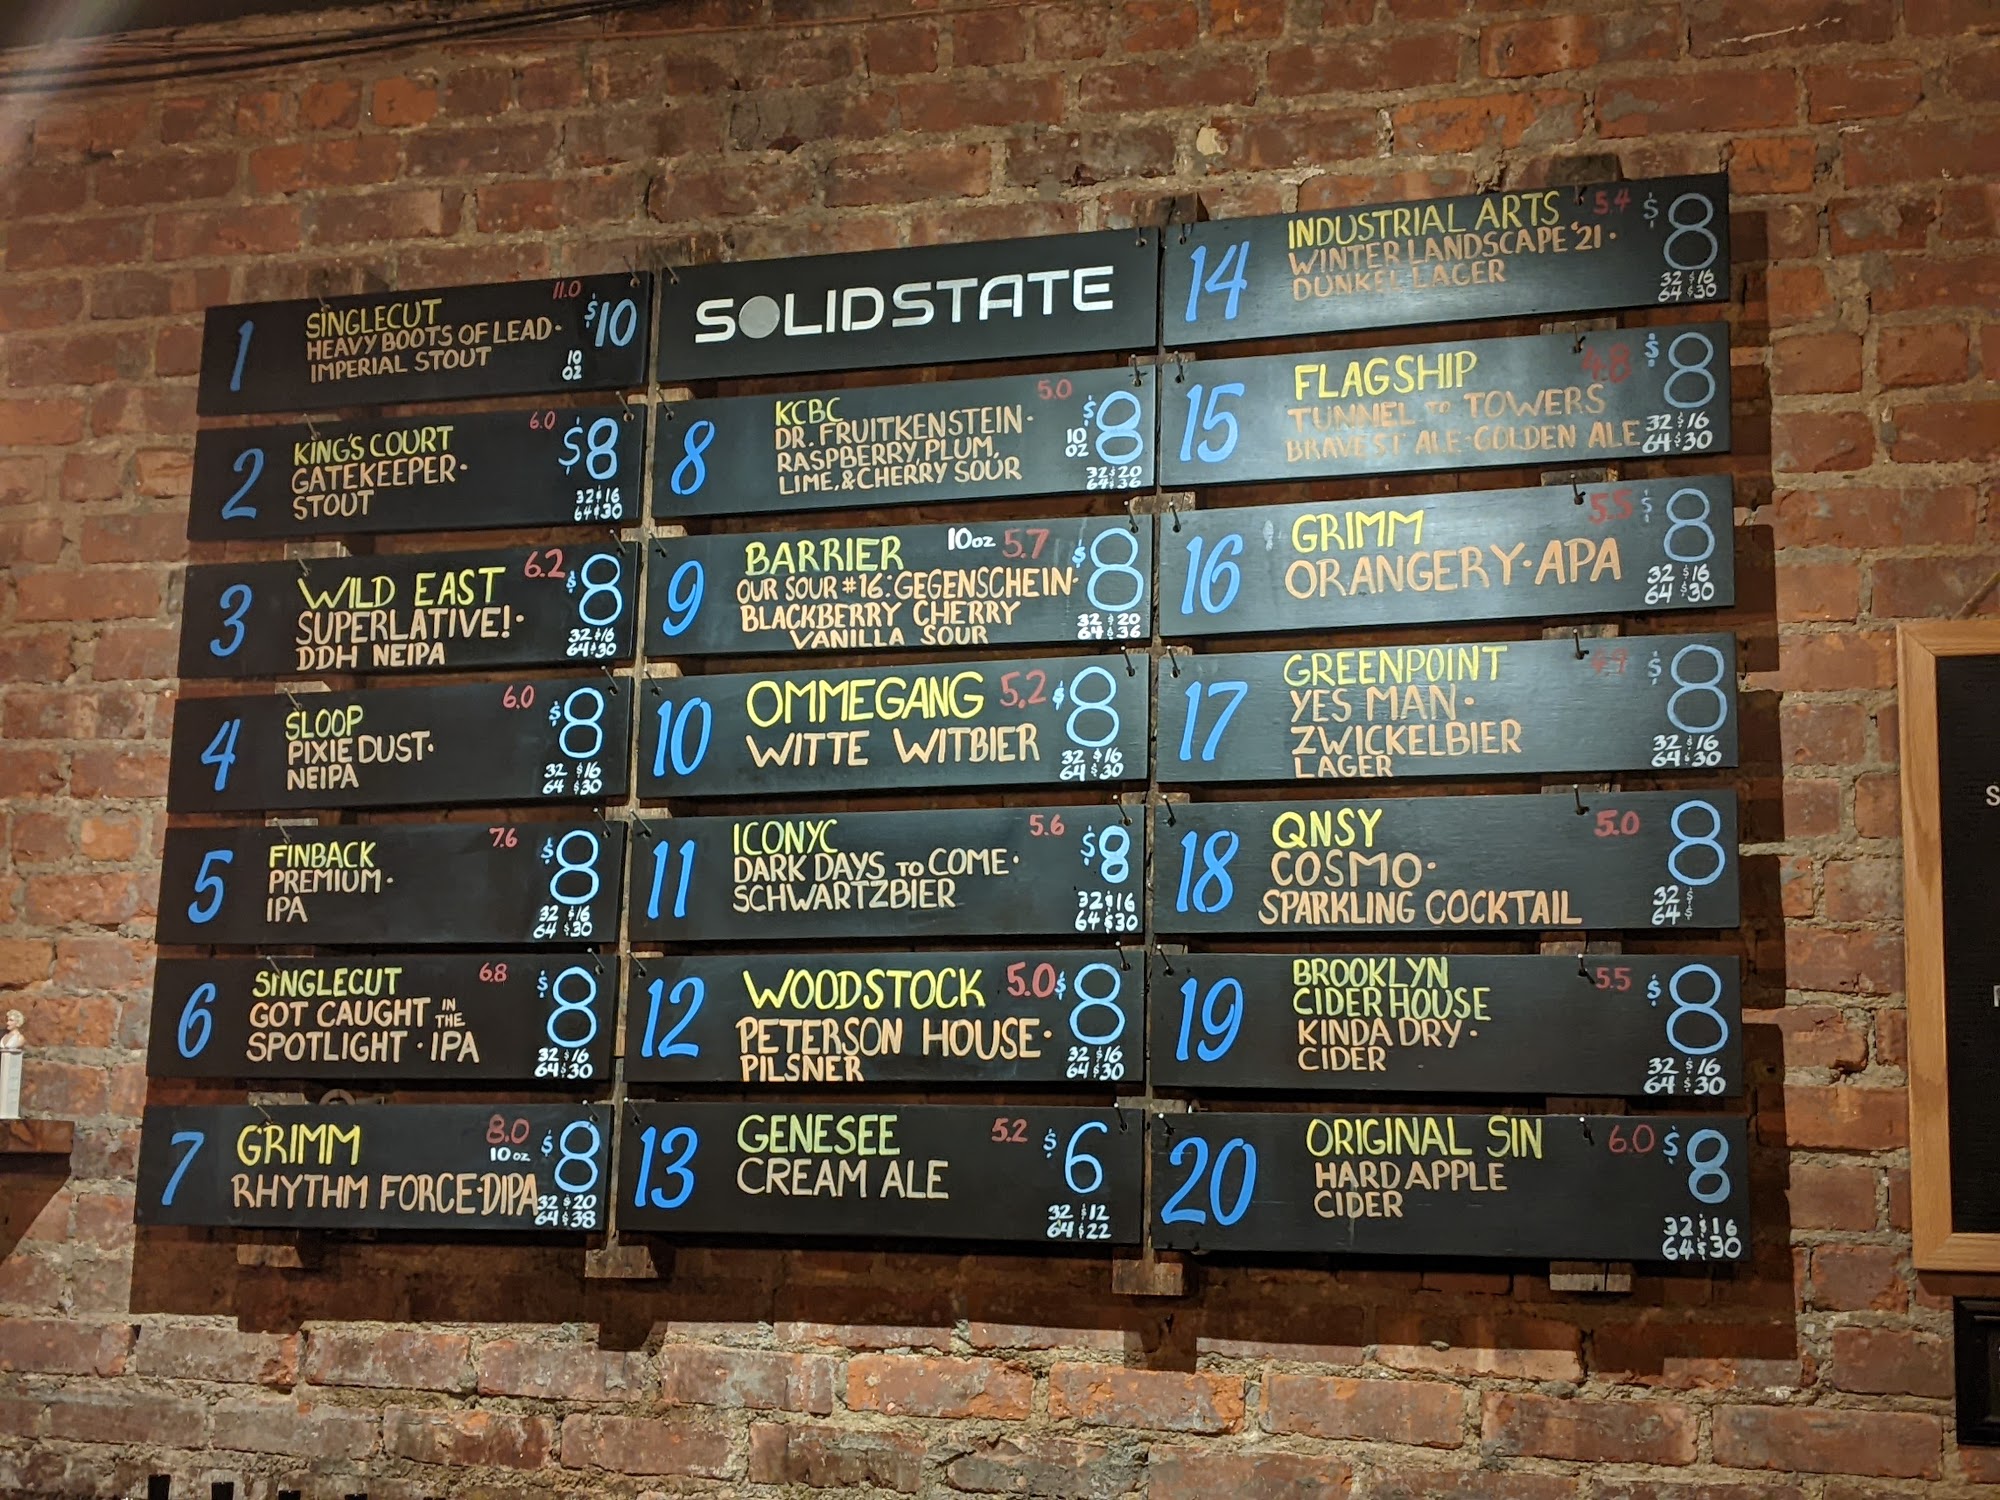 1
SINGLECUT 11.0 $10
HEAVY BOOTS OF LEAD·
IMPERIAL STOUT
10
OZ
2
KING'S COURT 6.0 $8
GATEKEEPER·
STOUT
32 $16
64 $30
3
WILD EAST 6.2 $8
SUPERLATIVE!·
DDH NEIPA
32 $16
64 $30
4
SLOOP 6.0 $8
PIXIE DUST·
NEIPA
32 $16
64 $30
5
FINBACK 7.6 $8
PREMIUM·
IPA
32 $16
64 $30
6
SINGLECUT 6.8 $8
GOT CAUGHT IN THE
SPOTLIGHT · IPA
32 $16
64 $30
7
GRIMM 8.0 $8
10 oz
RHYTHM FORCE·DIPA
32 $20
64 $38
SOLIDSTATE
8
KCBC 5.0 $8
DR. FRUITKENSTEIN·
RASPBERRY, PLUM,
LIME, & CHERRY SOUR
10
OZ
32 $20
64 $36
9
BARRIER 10oz 5.7 $8
OUR SOUR #16: GEGENSCHEIN·
BLACKBERRY CHERRY
VANILLA SOUR
32 $20
64 $36
10
OMMEGANG 5.2 $8
WITTE WITBIER
32 $16
64 $30
11
ICONYC 5.6 $8
DARK DAYS TO COME·
SCHWARTZBIER
32 $16
64 $30
12
WOODSTOCK 5.0 $8
PETERSON HOUSE·
PILSNER
32 $16
64 $30
13
GENESEE 5.2 $6
CREAM ALE
32 $12
64 $22
14
INDUSTRIAL ARTS 5.4 $8
WINTER LANDSCAPE '21·
DUNKEL LAGER
32 $16
64 $30
15
FLAGSHIP 4.8 $8
TUNNEL TO TOWERS
BRAVEST ALE·GOLDEN ALE
32 $16
64 $30
16
GRIMM 5.5 $8
ORANGERY·APA
32 $16
64 $30
17
GREENPOINT $8
YES MAN·
ZWICKELBIER
LAGER
32 $16
64 $30
18
QNSY 5.0 8
COSMO·
SPARKLING COCKTAIL
32 $
64 $
19
BROOKLYN 5.5 $8
CIDER HOUSE
KINDA DRY·
CIDER
32 $16
64 $30
20
ORIGINAL SIN 6.0 $8
HARD APPLE
CIDER
32 $16
64 $30